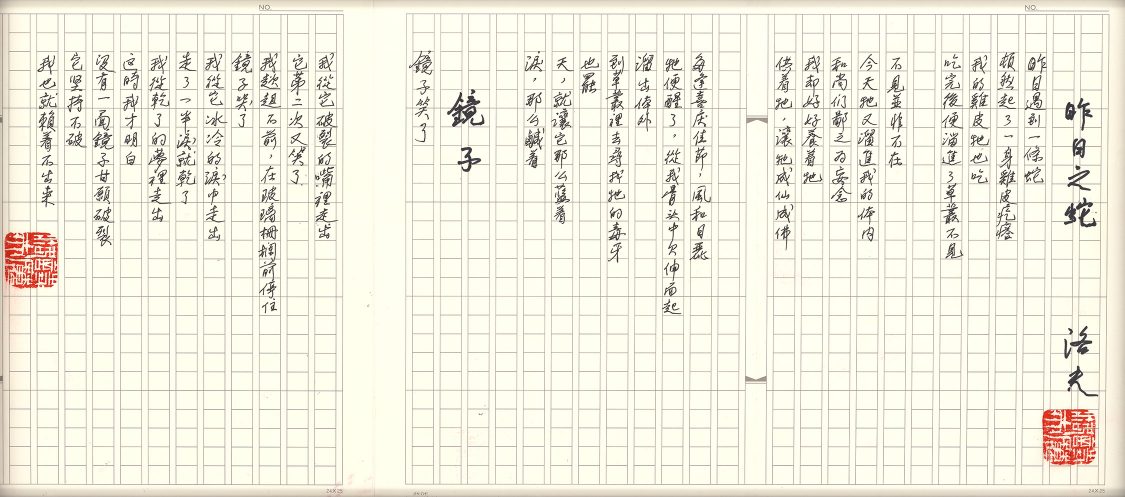 NO.
NO.
昨日之蛇
洛夫
昨日遇到一條蛇
頓然起了一身雞皮疙瘩
我的雞皮牠也吃
吃完後便溜進了草叢不見
不見並非不在
今天牠又溜進我的体內
和尚们鄙之为妄念
我却好好養着牠
供着牠，讓牠成仙成佛
每逢喜庆佳節，風和日麗
牠便醒了，從我骨头中欠伸而起
溜出体外
到草叢裡去尋找牠的毒牙
也罷
天，就讓它那么藍着
淚，那么鹹着
鏡子
鏡子笑了
我從它破裂的嘴裡走出
它第二次又笑了
我趑趄不前，在玻璃柵欄前停住
鏡子哭了
我從它冰冷的淚中走出
走了一半淚就乾了
我從乾了的夢裡走出
这時我才明白
沒有一面鏡子甘願破裂
它坚持不破
我也就賴着不出来
24X25
24X25